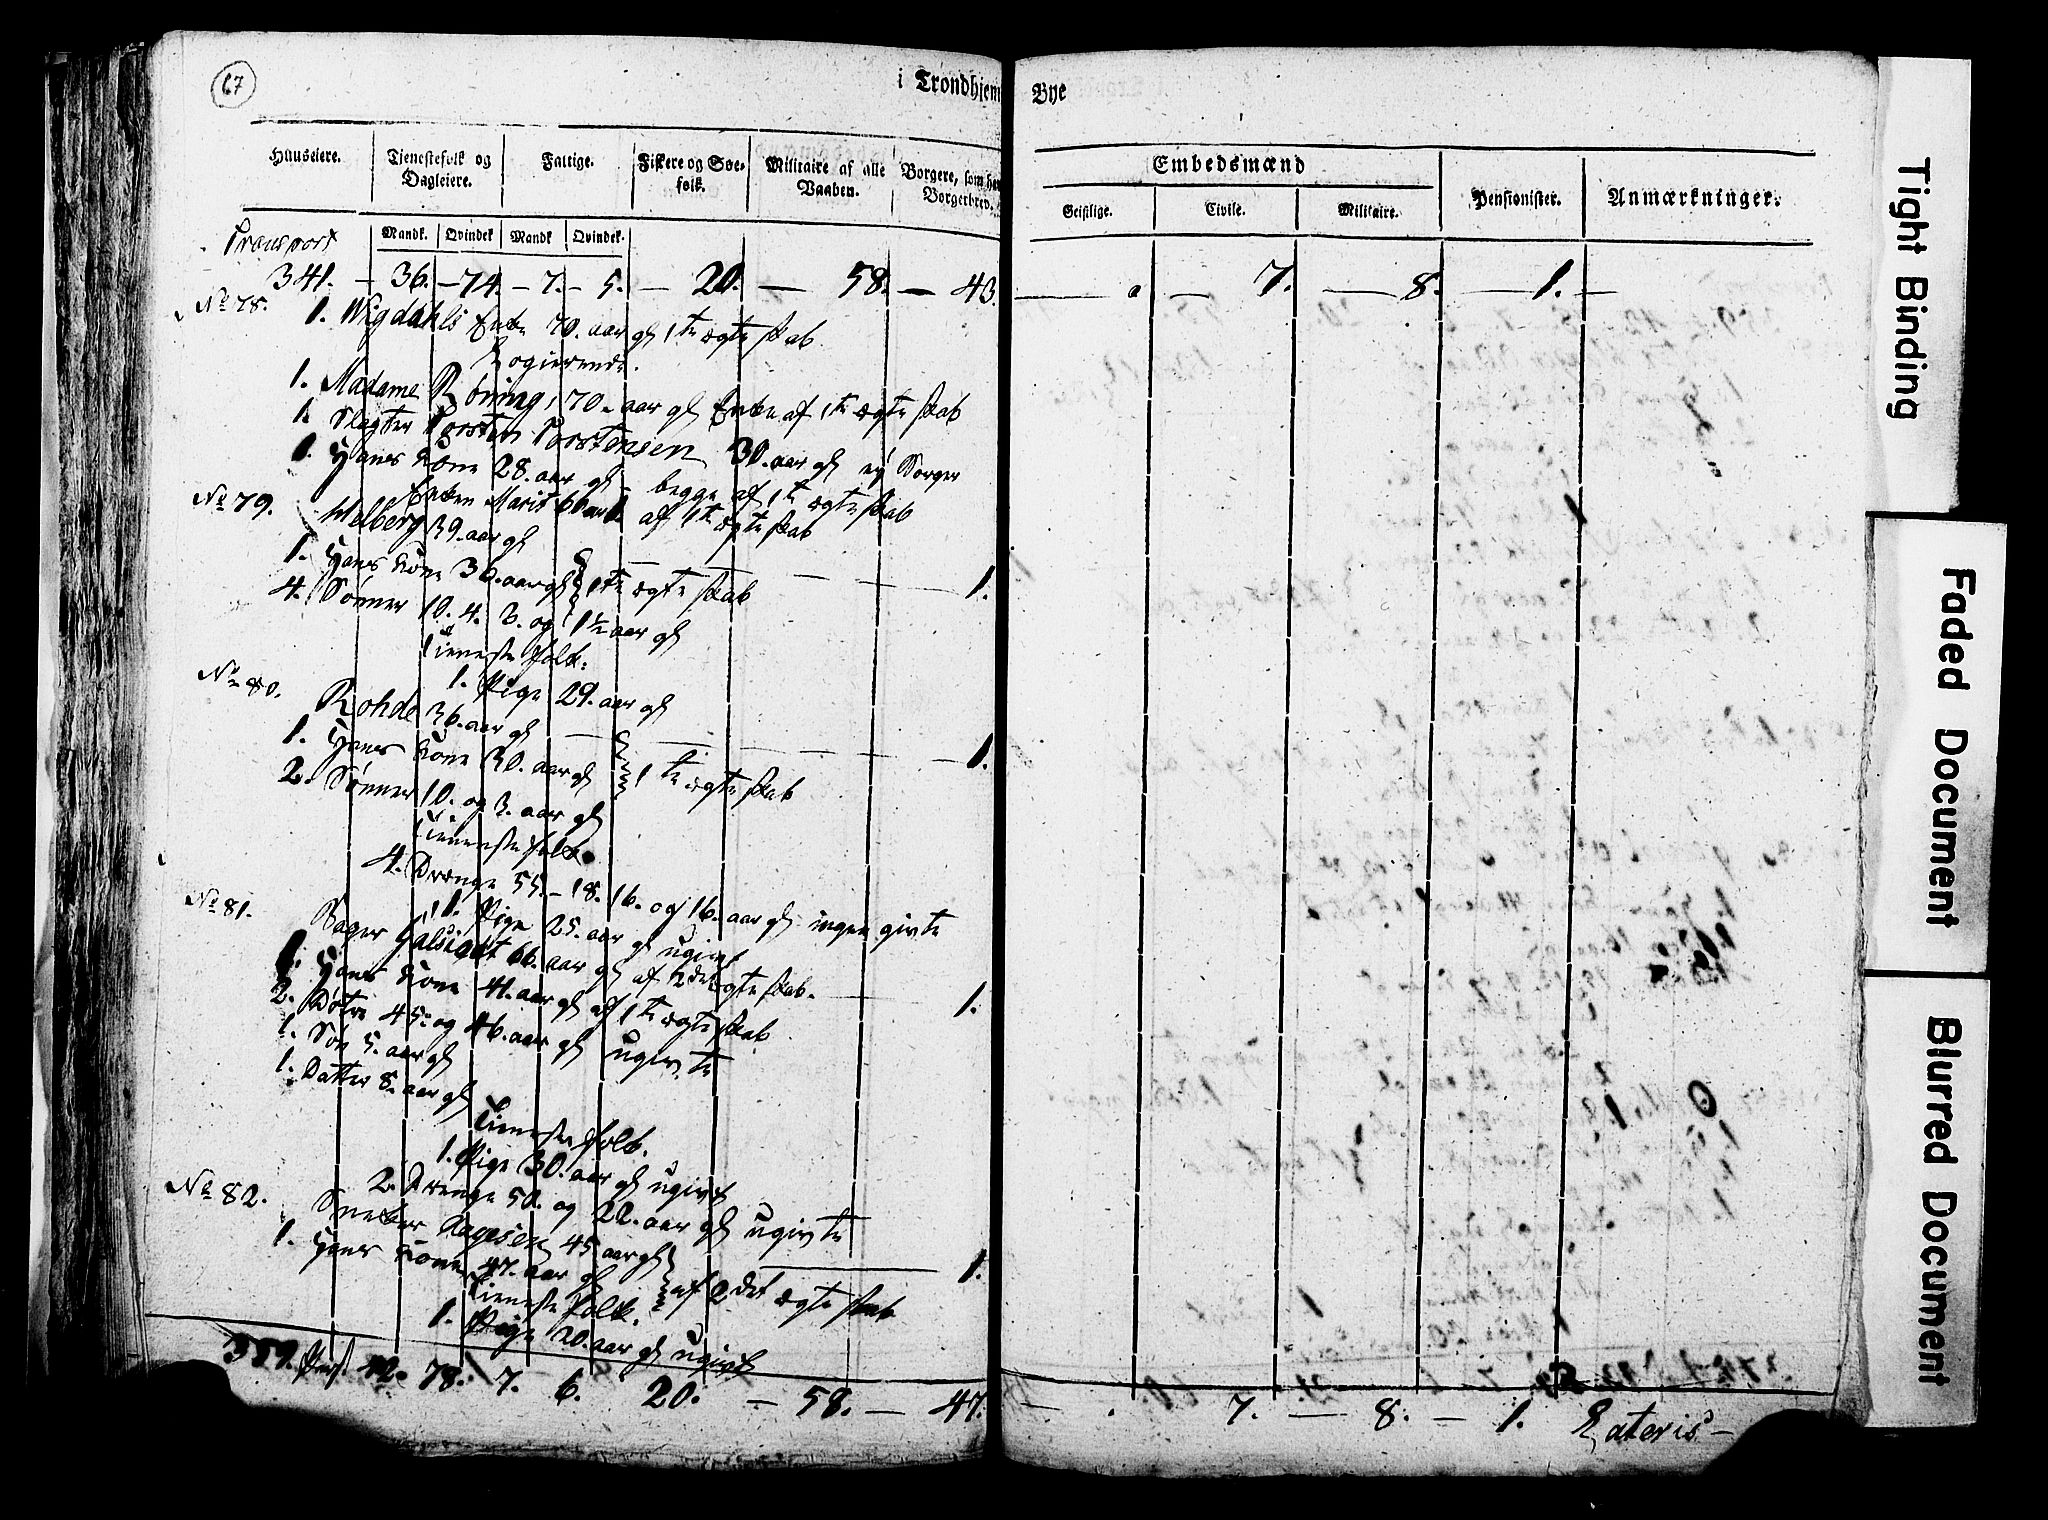 67
i Trondhjem Bye
Huuseiere. Tienestefolk og Dagleiere. Fattige. Fiskere og Søefolk. Militaire af alle Vaaben. Borgere, som har Borgerbrev.
Embedsmænd Pensionister. Anmærkninger.
Geistlige. Civile. Militaire.
Mandk. Qvindek Mandk Qvindek.
Transport
341. – 36. – 74. – 7. – 5. – 20. – 58. – 43. 7. – 8. – 1. –
No 78. 1. Wigdahls Enke 70. aar gl 1te ægteskab
Logierende.
1. Madame Röning, 70. aar gl Enke af 1te ægteskab
1. Slagter Torsten Torstensen 30. aar gl ej Borger
1. Hans Kone 28. aar gl – begge af 1te ægteskab
Enken Marit 66 aar af 1te ægteskab
No 79. Melberg 39. aar gl
1. Hans Kone 30. aar gl 1te ægteskab – 1.
4. Sønner 10. 4. 3. og 1½ aar gl
Tieneste folk:
1. Pige 29. aar gl
No 80. Rohde 36. aar gl
1. Hans Kone 30. aar gl 1te ægteskab – 1.
2. Sønner 10. og 3. aar gl
Tieneste folk.
4. Drenge 55. – 18. 16. og 16. aar gl ingen givte
1. Pige 25. aar gl ugivt
No 81. Bager 66. aar gl af 2det ægteskab. – 1.
1. Hans Kone 41. aar gl af 1te ægteskab
2. Døtre 45. og 46. aar gl ugivte
1. Søn 5. aar gl
1. Datter 8. aar gl
Tieneste folk.
1. Pige 30. aar gl ugivt
2. Drenge 50. og 22. aar gl ugivte
No 82. Sneker Aagesen 45 aar gl
1. Hans Kone 47. aar gl af 2det ægteskab – 1.
Tieneste folk.
1. Pige 20. aar gl ugivt
359. 42. 78. 7. 6. 20. – 58. – 47. 7. – 8. – 1. Lateris –
Tight Binding
Faded Document
Blurred Document